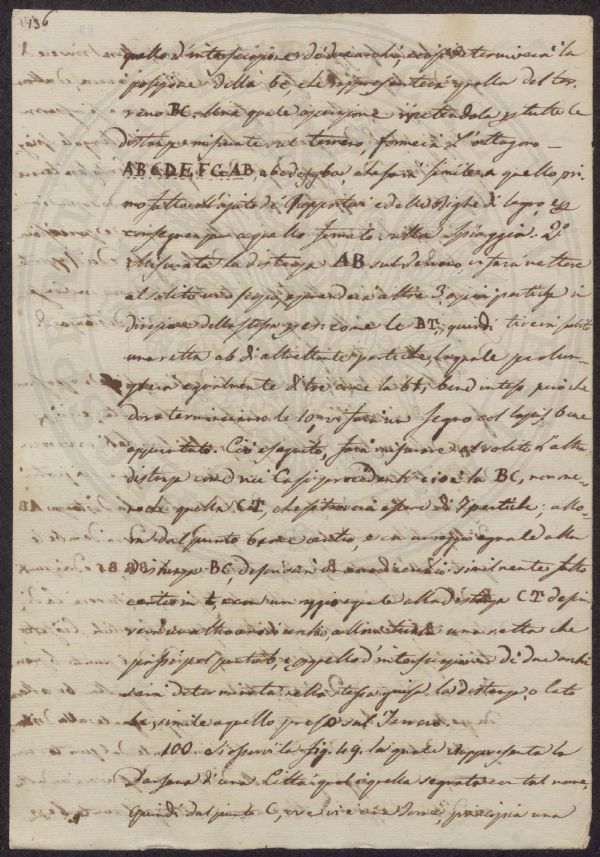 136
quello d'intersezione di due archi, così determinerà la
posizione della bc, che rappresenterà quella del ter-
reno BC. Una quale operazione ripetendola per tutte le
distanze misurate sul terreno, formerà l'ottagono
ABCDEFGAB, che sarà simile a quello pri-
mo fatto coll'ajuto di Rapportatori e delle Righe di legno, e per
conseguenza a quello formato sulla Spiaggia. 2.º
Misurata la distanza AB sul Terreno, si farà mettere
al solito uno scopo, e prenderà altre 3 particelle in
direzione della stessa per come le BT; quindi tirerà subito
una retta ab di altrettante particelle, la quale prolun-
gherà egualmente di tre come la bt, bene inteso, però che
dove terminerà le 10, vi farà un segno col lapis bene
appuntato. Ciò eseguito, farà misurare al solito l'altra
distanza come nei Casi precedenti cioè la BC, non me-
no che quella CT, che si troverà essere di 7 particelle; allo-
ra dal punto b come centro, e con un raggio eguale alla
distanza BC, descriverà un arco di cerchio similmente fatto
centro in t, e con un raggio eguale alla distanza CT descri-
verà un altro arco di cerchio, allora tirata una retta che
passi pel punto b, e quello d'intersezione di due archi
sarà determinata nella stessa guisa la distanza, o lato
bc, simile a quello preso sul Terreno.
100. Si osservi la fig. 49. la quale rappresenta la
Darsena d'una Città qual è quella segnata con tal nome,
quindi dal punto C, ove vi è una Torre, principia una